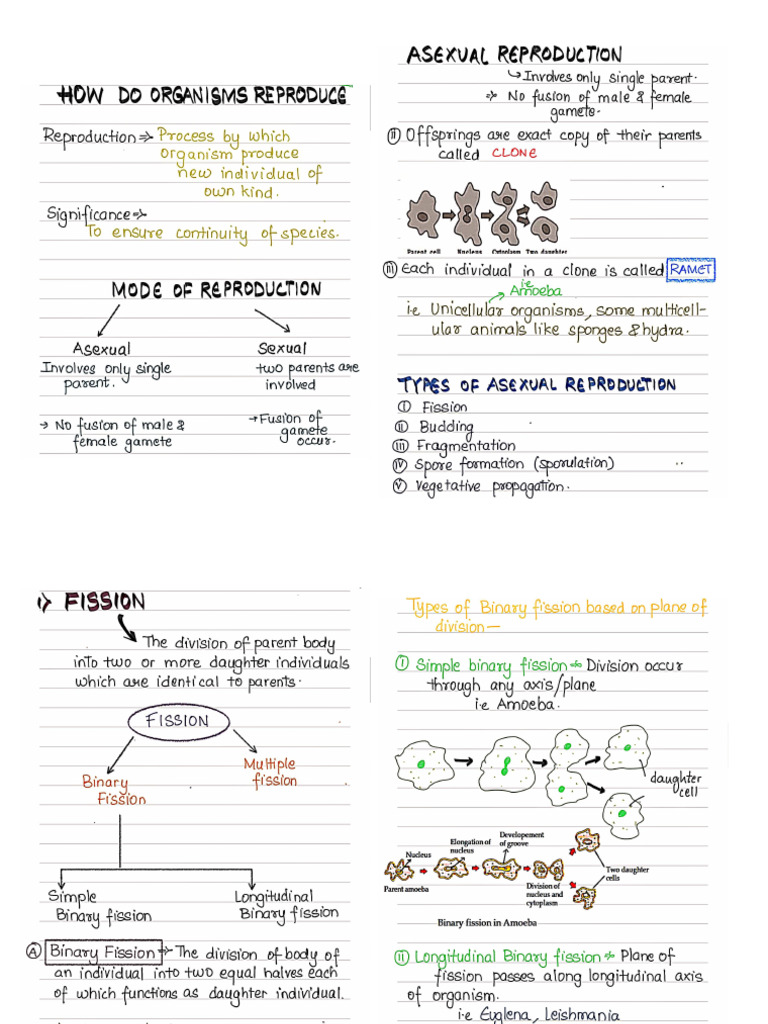 HOW DO ORGANISMS REPRODUCE
Reproduction → Process by which
organism produce
new individual of
own kind.
Significance →
To ensure continuity of species.
MODE OF REPRODUCTION
Asexual
Involves only single
parent.
→ No fusion of male &
female gamete
Sexual
two parents are
involved
→ Fusion of
gamete
occur.
ASEXUAL REPRODUCTION
↳ Involves only single parent.
→ No fusion of male & female
gamete.
(ii) Offsprings are exact copy of their parents
called CLONE
Parent cell Nucleus Cytoplasm Two daughter
(iii) Each individual in a clone is called RAMET
i.e
Amoeba
i.e Unicellular organisms, some multicell-
ular animals like sponges & hydra.
TYPES OF ASEXUAL REPRODUCTION
(i) Fission
(ii) Budding
(iii) Fragmentation
(iv) Spore formation (sporulation)
(v) Vegetative propagation.
i) FISSION
The division of parent body
into two or more daughter individuals
which are identical to parents.
FISSION
Binary
Fission
Multiple
fission
Simple
Binary fission
Longitudinal
Binary fission
(A) Binary Fission → The division of body of
an individual into two equal halves each
of which functions as daughter individual.
Types of Binary fission based on plane of
division —
(i) Simple binary fission → Division occur
through any axis/plane
i.e Amoeba.
daughter
cell
Nucleus
Elongation of
nucleus
Developement
of groove
Parent amoeba
Division of
nucleus and
cytoplasm
Two daughter
cells
Binary fission in Amoeba
(ii) Longitudinal Binary fission → Plane of
fission passes along longitudinal axis
of organism.
i.e Euglena, Leishmania